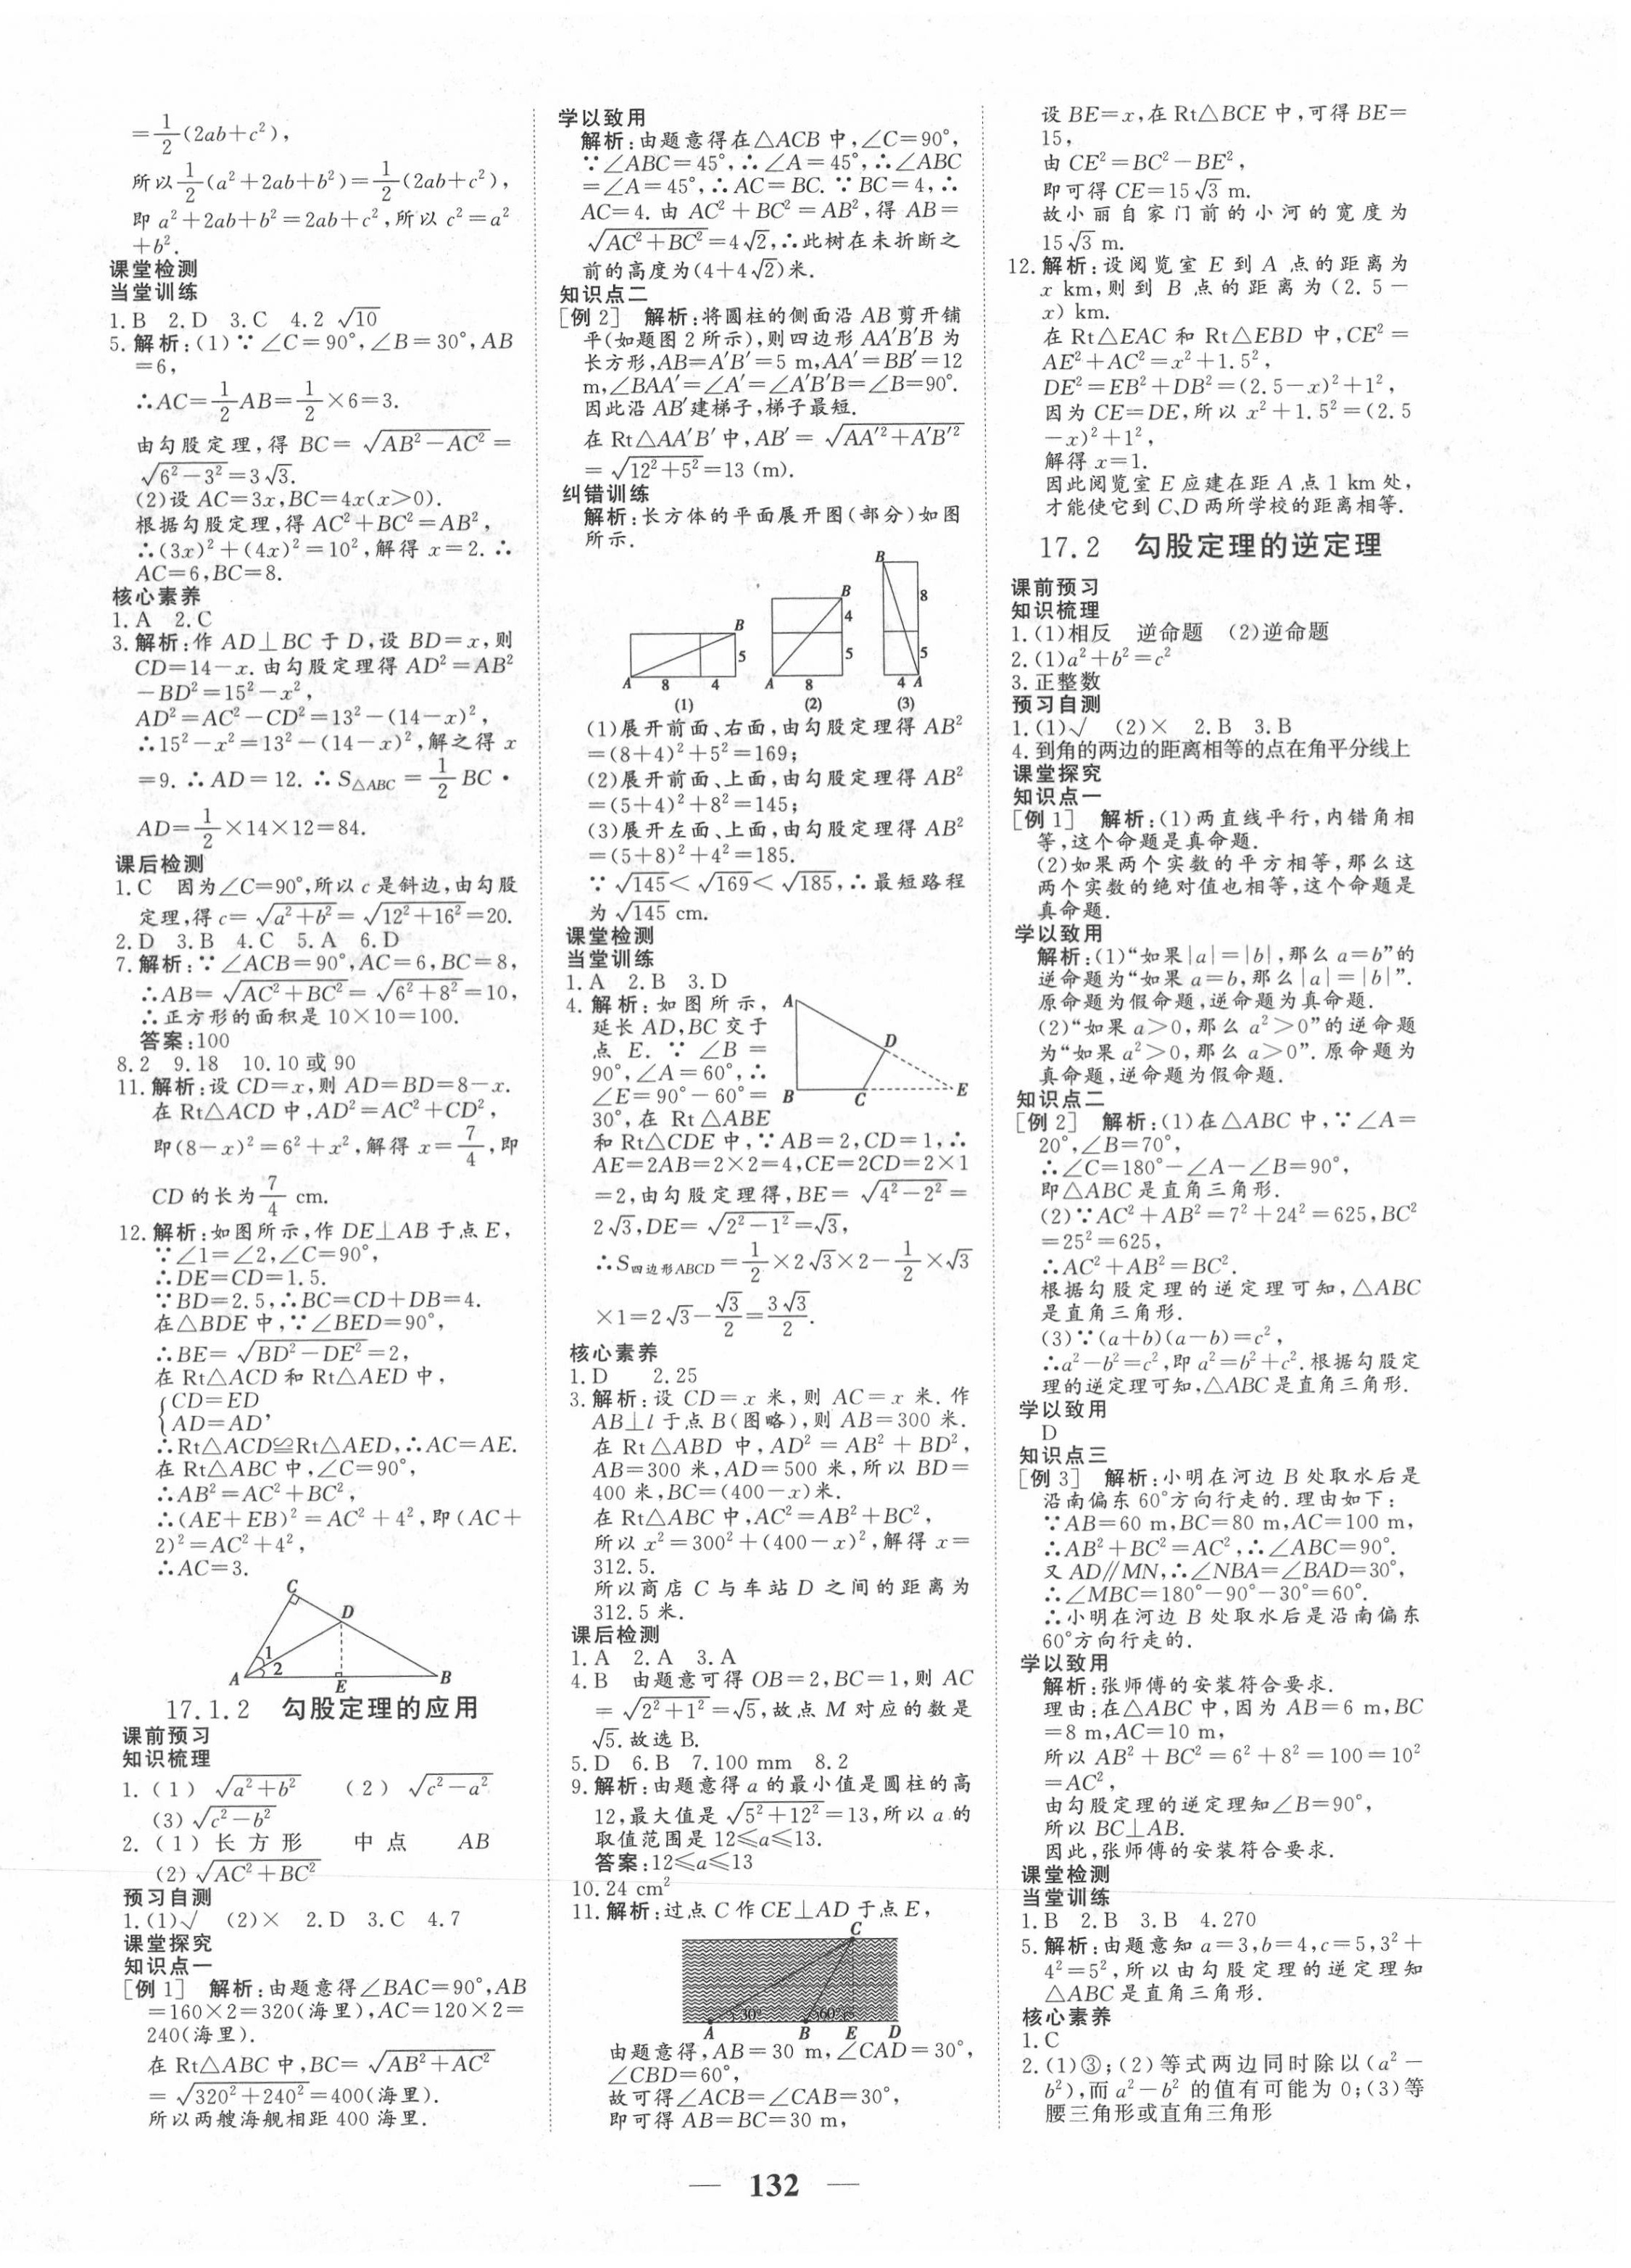 =1/2(2ab+c²),
所以1/2(a²+2ab+b²)=1/2(2ab+c²),
即 a²+2ab+b²=2ab+c²,所以 c²=a²
+b².
课堂检测
当堂训练
1.B 2.D 3.C 4.2 √10
5.解析:(1)∵∠C=90°,∠B=30°,AB
=6,
∴AC=1/2AB=1/2×6=3.
由勾股定理,得 BC=√(AB²-AC²)=
√(6²-3²)=3√3.
(2)设 AC=3x,BC=4x(x>0).
根据勾股定理,得 AC²+BC²=AB²,
∴(3x)²+(4x)²=10²,解得 x=2.∴
AC=6,BC=8.
核心素养
1.A 2.C
3.解析:作 AD⊥BC 于 D,设 BD=x,则
CD=14-x.由勾股定理得 AD²=AB²
-BD²=15²-x²,
AD²=AC²-CD²=13²-(14-x)²,
∴15²-x²=13²-(14-x)²,解之得 x
=9.∴AD=12.∴S△ABC=1/2BC·
AD=1/2×14×12=84.
课后检测
1.C 因为∠C=90°,所以 c 是斜边,由勾股
定理,得 c=√(a²+b²)=√(12²+16²)=20.
2.D 3.B 4.C 5.A 6.D
7.解析:∵∠ACB=90°,AC=6,BC=8,
∴AB=√(AC²+BC²)=√(6²+8²)=10,
∴正方形的面积是 10×10=100.
答案:100
8.2 9.18 10.10 或 90
11.解析:设 CD=x,则 AD=BD=8-x.
在 Rt△ACD 中,AD²=AC²+CD²,
即(8-x)²=6²+x²,解得 x=7/4,即
CD 的长为7/4 cm.
12.解析:如图所示,作 DE⊥AB 于点 E,
∵∠1=∠2,∠C=90°,
∴DE=CD=1.5.
∵BD=2.5,∴BC=CD+DB=4.
在△BDE 中,∵∠BED=90°,
∴BE=√(BD²-DE²)=2,
在 Rt△ACD 和 Rt△AED 中,
{CD=ED
AD=AD,
∴Rt△ACD≌Rt△AED,∴AC=AE.
在 Rt△ABC 中,∠C=90°,
∴AB²=AC²+BC²,
∴(AE+EB)²=AC²+4²,即(AC+
2)²=AC²+4²,
∴AC=3.
C
D
1
2
A
E
B
17.1.2 勾股定理的应用
课前预习
知识梳理
1.(1)√(a²+b²) (2)√(c²-a²)
(3)√(c²-b²)
2.(1)长方形 中点 AB
(2)√(AC²+BC²)
预习自测
1.(1)√ (2)× 2.D 3.C 4.7
课堂探究
知识点一
[例1] 解析:由题意得∠BAC=90°,AB
=160×2=320(海里),AC=120×2=
240(海里).
在 Rt△ABC 中,BC=√(AB²+AC²)
=√(320²+240²)=400(海里).
所以两艘海舰相距 400 海里.
学以致用
解析:由题意得在△ACB 中,∠C=90°,
∵∠ABC=45°,∴∠A=45°,∴∠ABC
=∠A=45°,∴AC=BC.∵BC=4,∴
AC=4.由 AC²+BC²=AB²,得 AB=
√(AC²+BC²)=4√2,∴此树在未折断之
前的高度为(4+4√2)米.
知识点二
[例2] 解析:将圆柱的侧面沿 AB 剪开铺
平(如题图 2 所示),则四边形 AA′B′B 为
长方形,AB=A′B′=5 m,AA′=BB′=12
m,∠BAA′=∠A′=∠A′B′B=∠B=90°.
因此沿 AB′建梯子,梯子最短.
在 Rt△AA′B′中,AB′=√(AA′²+A′B′²)
=√(12²+5²)=13 (m).
纠错训练
解析:长方体的平面展开图(部分)如图
所示.
B
5
A 8 4
(1)
B
4
5
A 8
(2)
B
8
5
4 A
(3)
(1)展开前面、右面,由勾股定理得 AB²
=(8+4)²+5²=169;
(2)展开前面、上面,由勾股定理得 AB²
=(5+4)²+8²=145;
(3)展开左面、上面,由勾股定理得 AB²
=(5+8)²+4²=185.
∵√145<√169<√185,∴最短路程
为√145 cm.
课堂检测
当堂训练
1.A 2.B 3.D
4.解析:如图所示,
延长 AD,BC 交于
点 E.∵∠B=
90°,∠A=60°,∴
∠E=90°-60°=
30°,在 Rt△ABE
A
D
B
C
E
和 Rt△CDE 中,∵AB=2,CD=1,∴
AE=2AB=2×2=4,CE=2CD=2×1
=2,由勾股定理得,BE=√(4²-2²)=
2√3,DE=√(2²-1²)=√3,
∴S四边形ABCD=1/2×2√3×2-1/2×√3
×1=2√3-√3/2=3√3/2.
核心素养
1.D 2.25
3.解析:设 CD=x 米,则 AC=x 米.作
AB⊥l 于点 B(图略),则 AB=300 米.
在 Rt△ABD 中,AD²=AB²+BD²,
AB=300 米,AD=500 米,所以 BD=
400 米,BC=(400-x)米.
在 Rt△ABC 中,AC²=AB²+BC²,
所以 x²=300²+(400-x)²,解得 x=
312.5.
所以商店 C 与车站 D 之间的距离为
312.5 米.
课后检测
1.A 2.A 3.A
4.B 由题意可得 OB=2,BC=1,则 AC
=√(2²+1²)=√5,故点 M 对应的数是
√5.故选 B.
5.D 6.B 7.100 mm 8.2
9.解析:由题意得 a 的最小值是圆柱的高
12,最大值是√(5²+12²)=13,所以 a 的
取值范围是 12≤a≤13.
答案:12≤a≤13
10.24 cm²
11.解析:过点 C 作 CE⊥AD 于点 E,
C
30°
60°
A
B
E
D
由题意得,AB=30 m,∠CAD=30°,
∠CBD=60°,
故可得∠ACB=∠CAB=30°,
即可得 AB=BC=30 m,
设 BE=x,在 Rt△BCE 中,可得 BE=
15,
由 CE²=BC²-BE²,
即可得 CE=15√3 m.
故小丽自家门前的小河的宽度为
15√3 m.
12.解析:设阅览室 E 到 A 点的距离为
x km,则到 B 点的距离为(2.5-
x) km.
在 Rt△EAC 和 Rt△EBD 中,CE²=
AE²+AC²=x²+1.5²,
DE²=EB²+DB²=(2.5-x)²+1²,
因为 CE=DE,所以 x²+1.5²=(2.5
-x)²+1²,
解得 x=1.
因此阅览室 E 应建在距 A 点 1 km 处,
才能使它到 C、D 两所学校的距离相等.
17.2 勾股定理的逆定理
课前预习
知识梳理
1.(1)相反 逆命题 (2)逆命题
2.(1)a²+b²=c²
3.正整数
预习自测
1.(1)√ (2)× 2.B 3.B
4.到角的两边的距离相等的点在角平分线上
课堂探究
知识点一
[例1] 解析:(1)两直线平行,内错角相
等,这个命题是真命题.
(2)如果两个实数的平方相等,那么这
两个实数的绝对值也相等,这个命题是
真命题.
学以致用
解析:(1)“如果|a|=|b|,那么 a=b”的
逆命题为“如果 a=b,那么|a|=|b|”.
原命题为假命题,逆命题为真命题.
(2)“如果 a>0,那么 a²>0”的逆命题
为“如果 a²>0,那么 a>0”.原命题为
真命题,逆命题为假命题.
知识点二
[例2] 解析:(1)在△ABC 中,∵∠A=
20°,∠B=70°,
∴∠C=180°-∠A-∠B=90°,
即△ABC 是直角三角形.
(2)∵AC²+AB²=7²+24²=625,BC²
=25²=625,
∴AC²+AB²=BC².
根据勾股定理的逆定理可知,△ABC
是直角三角形.
(3)∵(a+b)(a-b)=c²,
∴a²-b²=c²,即 a²=b²+c².根据勾股定
理的逆定理可知,△ABC 是直角三角形.
学以致用
D
知识点三
[例3] 解析:小明在河边 B 处取水后是
沿南偏东 60°方向行走的.理由如下:
∵AB=60 m,BC=80 m,AC=100 m,
∴AB²+BC²=AC²,∴∠ABC=90°.
又 AD∥MN,∴∠NBA=∠BAD=30°,
∴∠MBC=180°-90°-30°=60°.
∴小明在河边 B 处取水后是沿南偏东
60°方向行走的.
学以致用
解析:张师傅的安装符合要求.
理由:在△ABC 中,因为 AB=6 m,BC
=8 m,AC=10 m,
所以 AB²+BC²=6²+8²=100=10²
=AC²,
由勾股定理的逆定理知∠B=90°,
所以 BC⊥AB.
因此,张师傅的安装符合要求.
课堂检测
当堂训练
1.B 2.B 3.B 4.270
5.解析:由题意知 a=3,b=4,c=5,3²+
4²=5²,所以由勾股定理的逆定理知
△ABC 是直角三角形.
核心素养
1.C
2.(1)③;(2)等式两边同时除以(a²-
b²),而 a²-b² 的值有可能为 0;(3)等
腰三角形或直角三角形
— 132 —